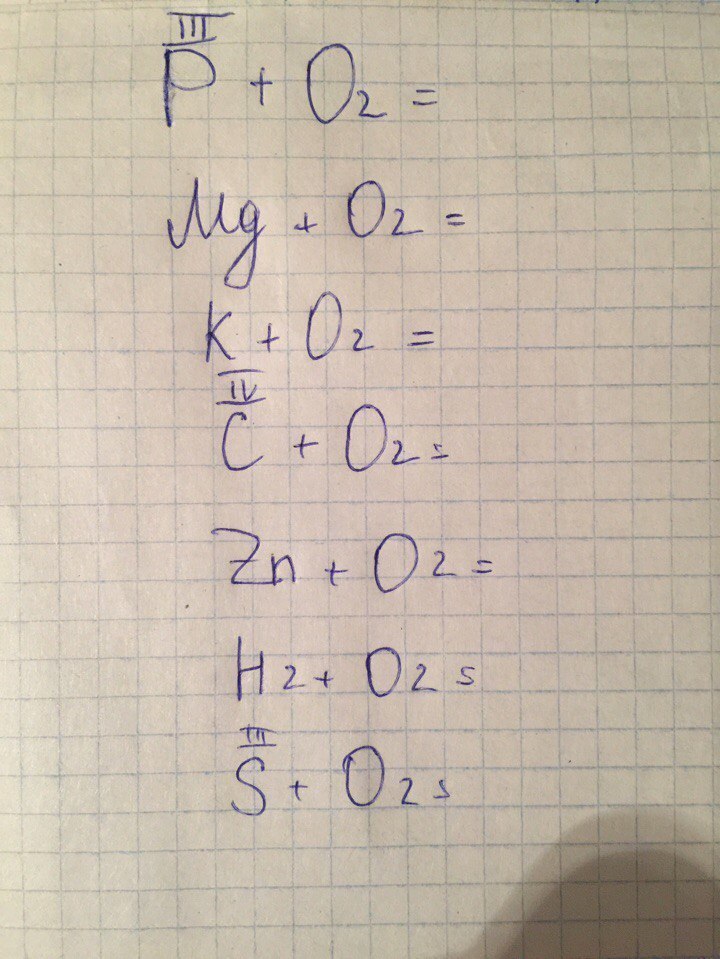 III
P + O2 =
Mg + O2 =
K + O2 =
IV
C + O2 =
Zn + O2 =
H2 + O2 =
III
S + O2 =